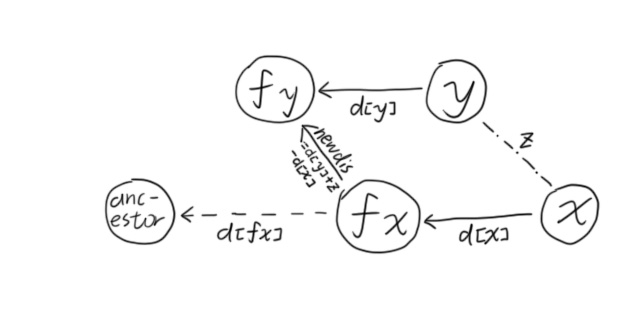 fy
y
d[y]
z
newdis
=d[y]+z
-d[x]
anc-
estor
d[fx]
fx
d[x]
x